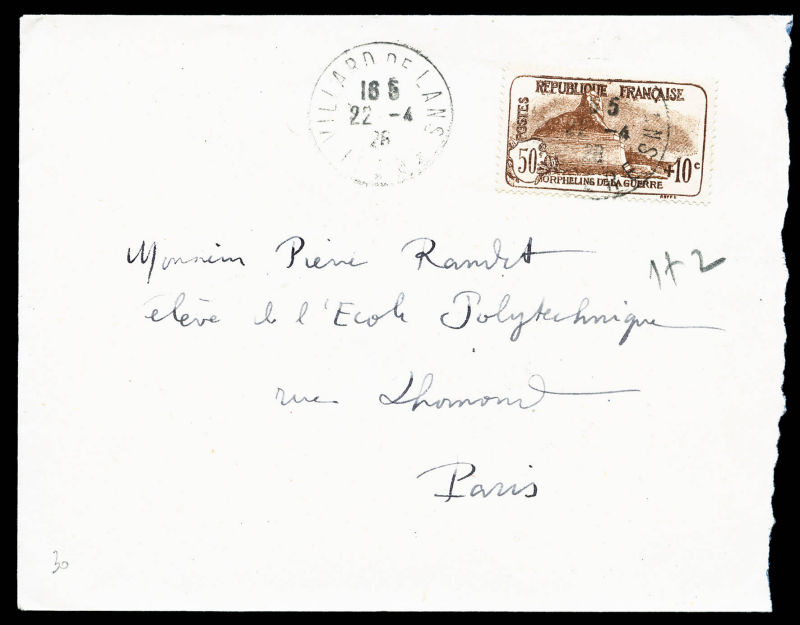 VILLARD DE LANS
16 5
22 -4
26
REPUBLIQUE FRANÇAISE
POSTES
50c
+10c
ORPHELINS DE LA GUERRE
Monsieur Pierre
1+2
élève de l'Ecole Polytechnique
rue Lhomond
Paris
30